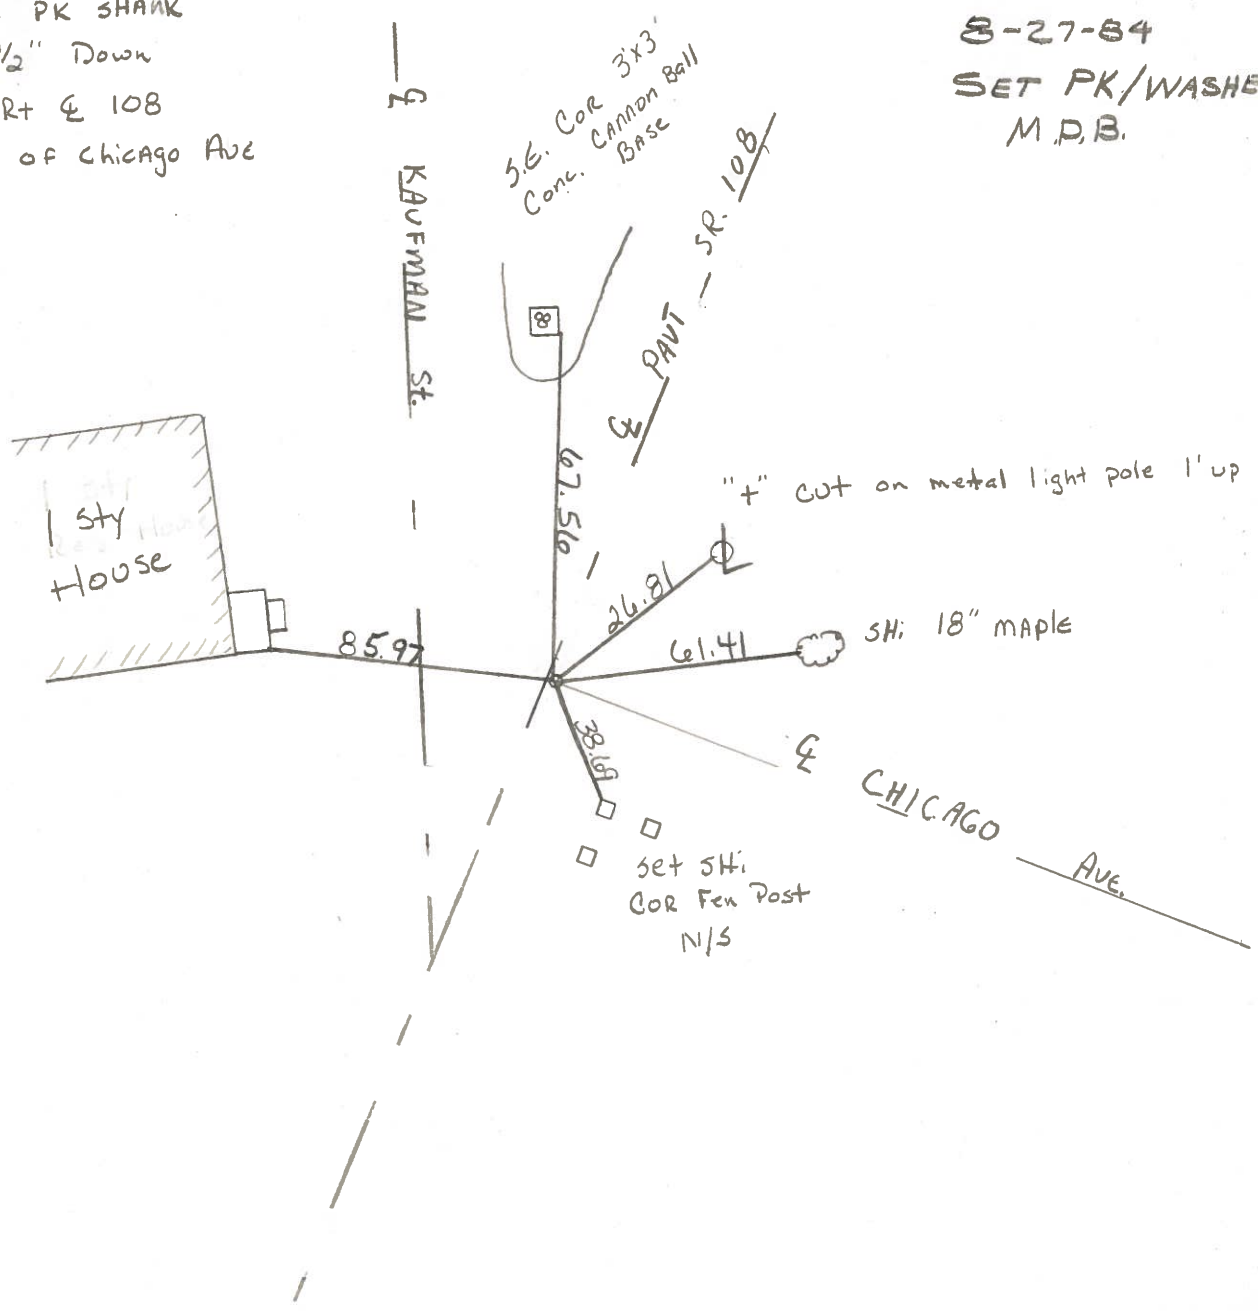 PK SHANK
1/2" Down
Rt ℄ 108
of Chicago Ave
8-27-84
SET PK/WASHE
M.D.B.
℄ KAUFMAN St.
S.E. COR 3'x3'
Conc. CANNON Ball
BASE
℄ PAVT - SR. 108
1 sty
House
67.56
"+" cut on metal light pole 1' up
26.81
85.97
61.41
SHi 18" MAPLE
38.69
℄ CHICAGO AVE.
set SHi
COR Fen Post
N/S